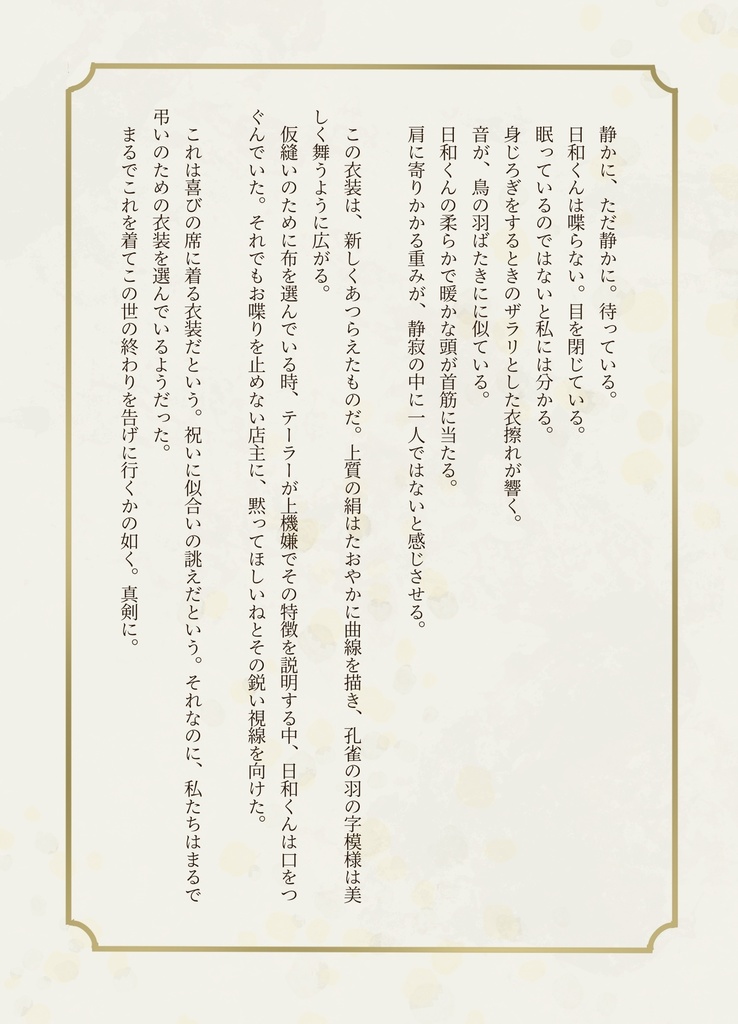 静かに、ただ静かに。待っている。
日和くんは喋らない。目を閉じている。
眠っているのではないと私には分かる。
身じろぎをするときのザラリとした衣擦れが響く。
音が、鳥の羽ばたきにに似ている。
日和くんの柔らかで暖かな頭が首筋に当たる。
肩に寄りかかる重みが、静寂の中に一人ではないと感じさせる。
この衣装は、新しくあつらえたものだ。上質の絹はたおやかに曲線を描き、孔雀の羽の字模様は美
しく舞うように広がる。
仮縫いのために布を選んでいる時、テーラーが上機嫌でその特徴を説明する中、日和くんは口をつ
ぐんでいた。それでもお喋りを止めない店主に、黙ってほしいねとその鋭い視線を向けた。
これは喜びの席に着る衣装だという。祝いに似合いの誂えだという。それなのに、私たちはまるで
弔いのための衣装を選んでいるようだった。
まるでこれを着てこの世の終わりを告げに行くかの如く。真剣に。